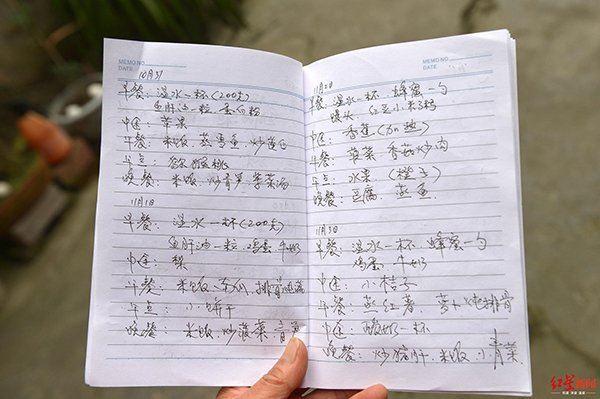 MEMO NO.
DATE
10月31
早餐:温水一杯(200克)
鱼肝油一粒 蛋白粉
中途:苹果
午餐:米饭 蒸鳕鱼 炒莲白
午点:猕猴桃
晚餐:米饭、炒青笋、紫菜汤
11月1日
早餐:温水一杯(200克)
鱼肝油一粒、鸡蛋、牛奶
中途:梨
午餐:米饭、冬瓜、排骨
午点:小饼干
晚餐:米饭、炒菠菜、青
MEMO NO.
DATE
11月2日
早餐:温水一杯 蜂蜜一勺
馒头 红豆小米粥
中途:香蕉(加热)
午餐:菠菜 香菇炒肉
午点:水果(橙子)
晚餐:豆腐、蒸鱼
11月3日
早餐:温水一杯、蜂蜜一勺
鸡蛋、牛奶
中途:小桔子
午餐:蒸红薯、萝卜炖排骨
中途:酸奶一杯
晚餐:炒猪肝、米饭、小青菜
红星新闻